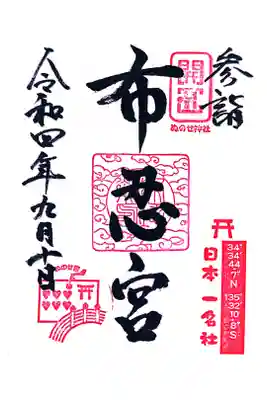 参詣
開運
ぬのせ神社
布忍宮
34°
34'
44
.7"N
135°
32'
10
.8"S
日本一名社
令和四年九月十日
ぬのせ宮